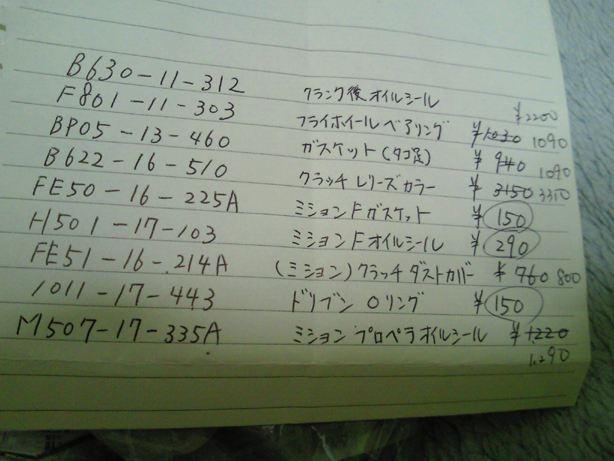 B630-11-312 クランク後オイルシール ¥2200
F801-11-303 フライホイールベアリング ¥1030 1090
BP05-13-460 ガスケット(タコ足) ¥940 1090
B622-16-510 クラッチレリーズカラー ¥3150 3350
FE50-16-225A ミションFガスケット ¥150
H501-17-103 ミションFオイルシール ¥290
FE51-16-214A (ミション)クラッチダストカバー ¥760 800
1011-17-443 ドリブンOリング ¥150
M507-17-335A ミションプロペラオイルシール ¥1220
1,290